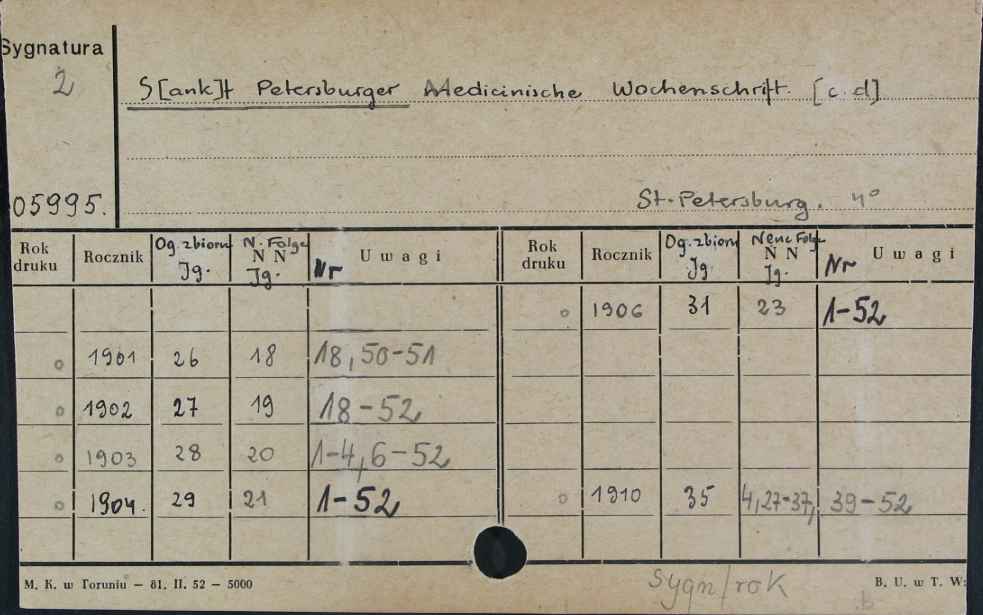 Sygnatura
2
S[ank]t Petersburger Medicinische Wochenschrift. [c.d]
05995.
St-Petersburg. 4°
Rok druku Rocznik Og. zbioru Jg. N. Folge N N Jg. Nr U w a g i
1901 26 18 18,50-51
1902 27 19 18-52
1903 28 20 1-4,6-52
1904. 29 21 1-52
Rok druku Rocznik Og. zbioru Jg. Neue Folge N N Jg. Nr U w a g i
1906 31 23 1-52
1910 35 4,27-37, 39-52
M. K. w Toruniu — 81. II. 52 — 5000
Sygn/rok
B. U. w T. W:
b